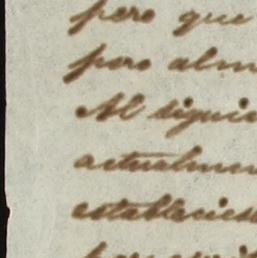 pero que
pero alm
Al siguie
actualmen
establecies